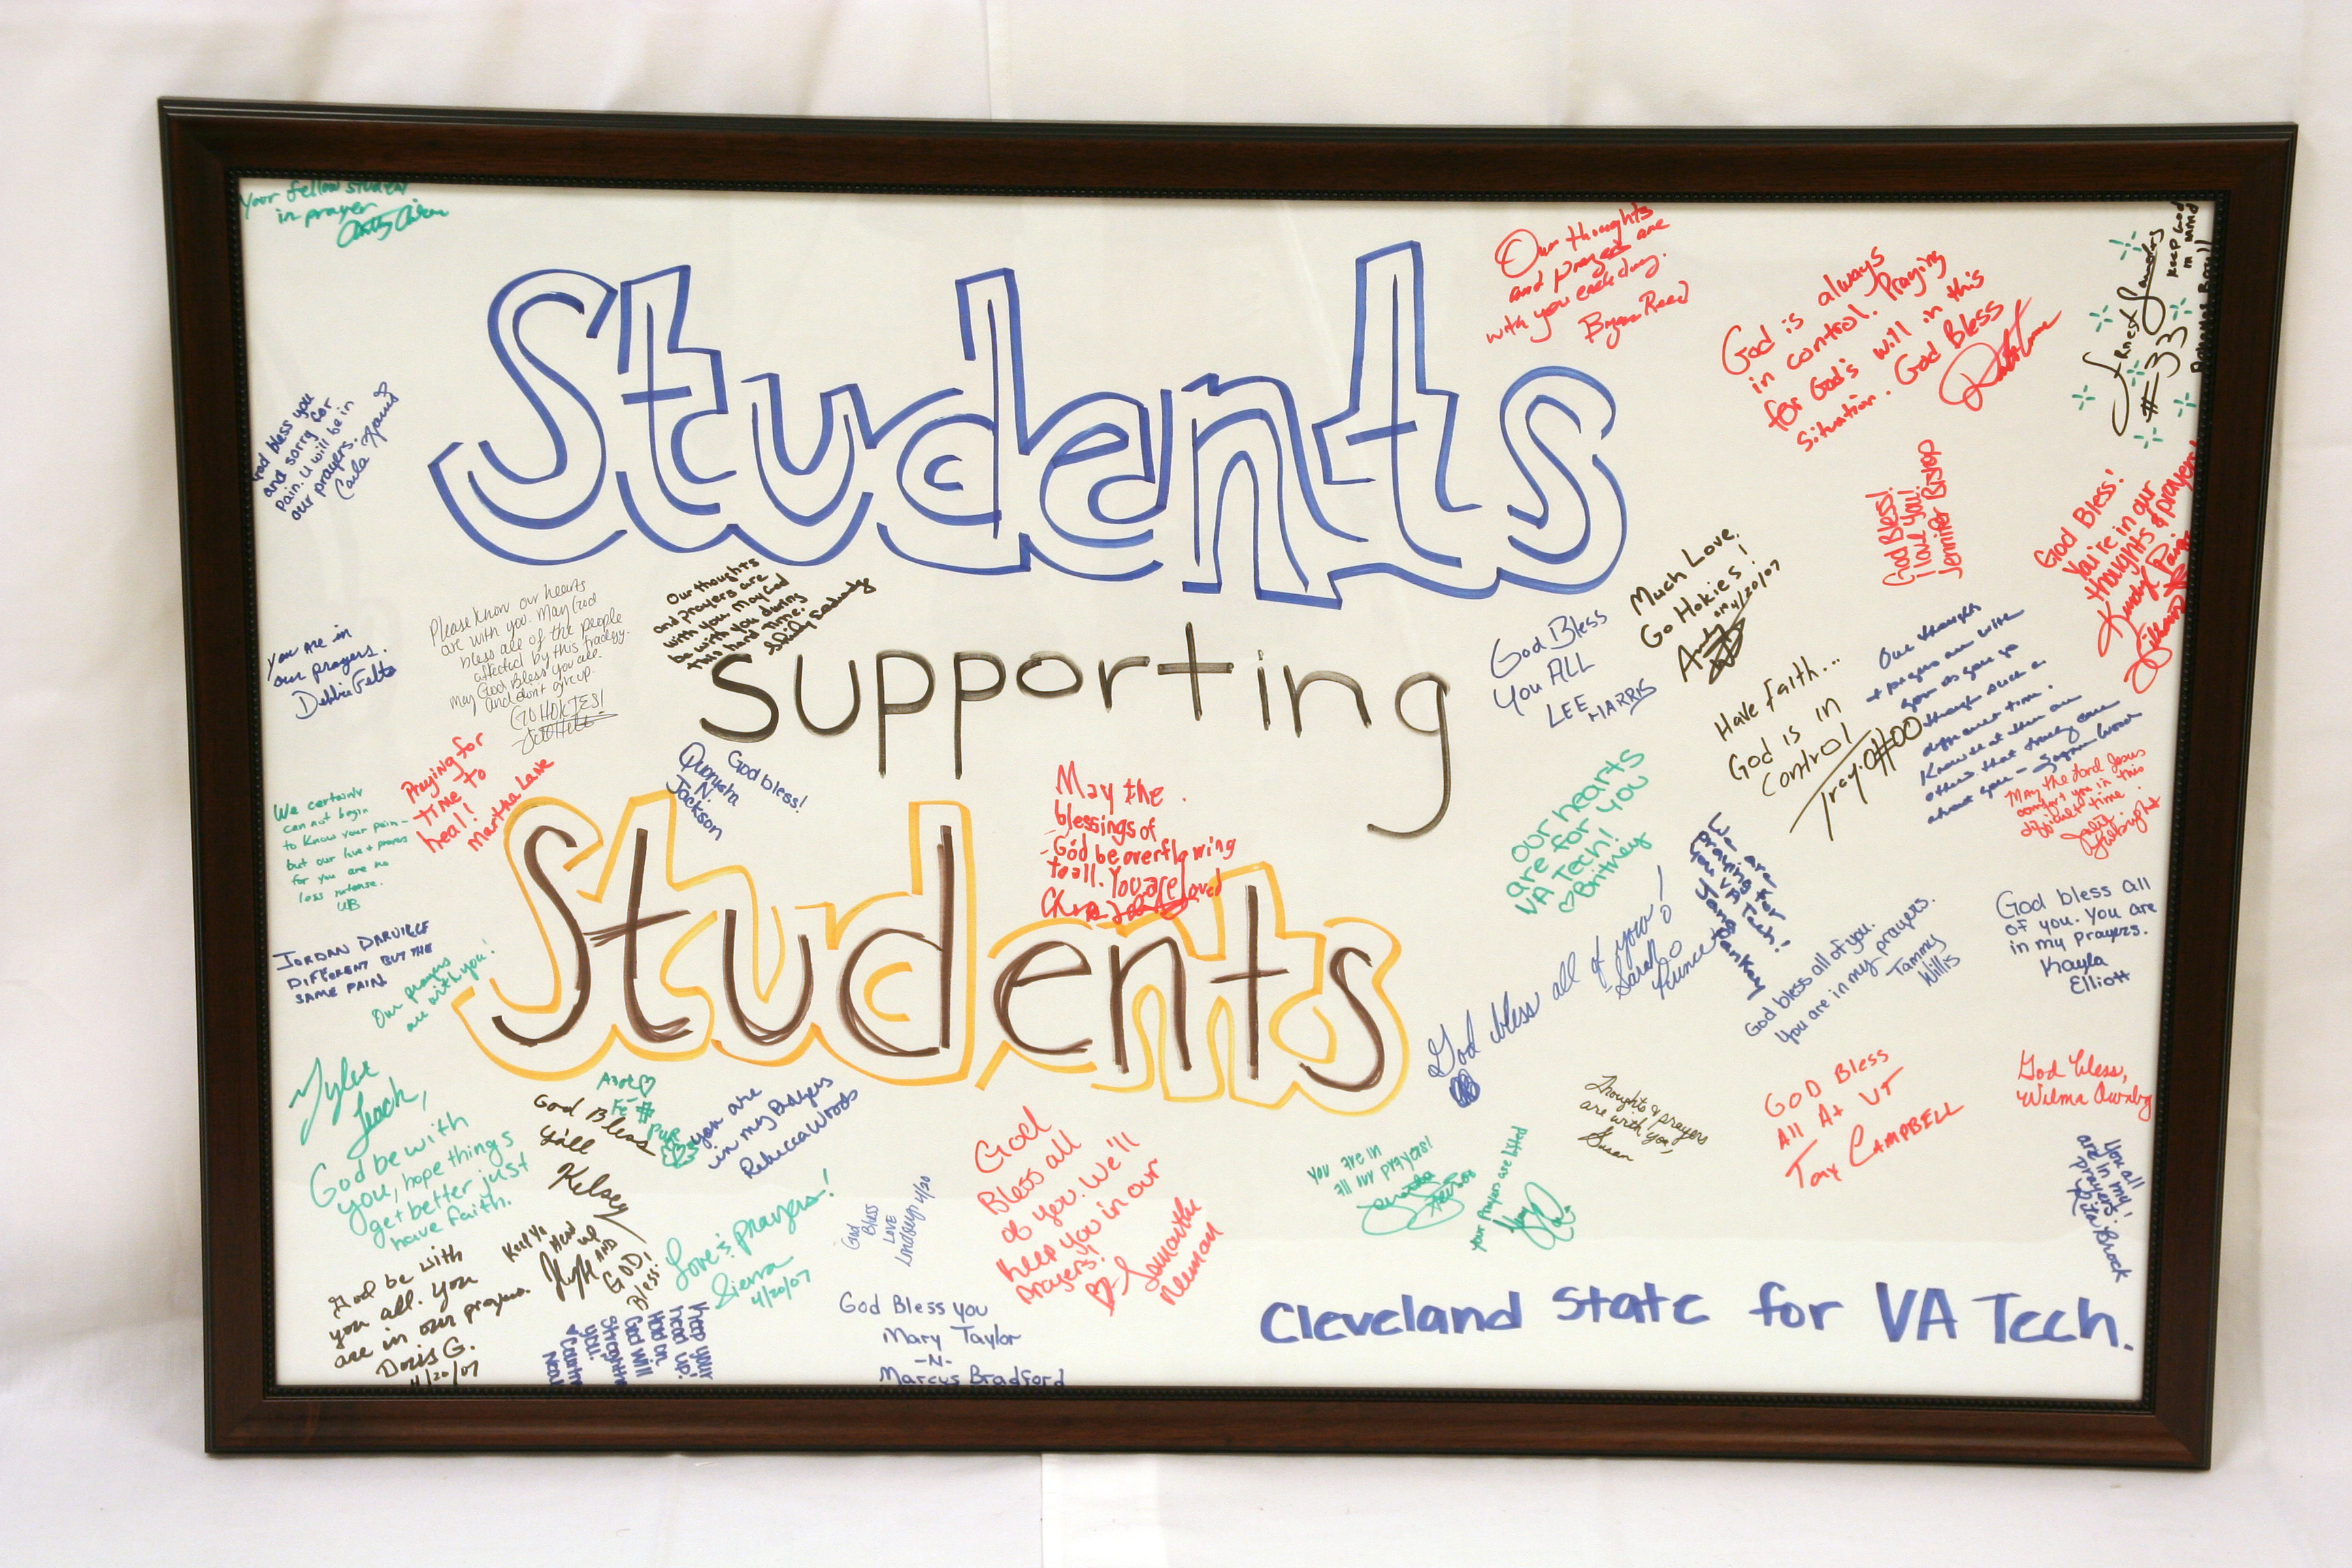 Your fellow student
in prayer
Students
supporting
Students
Cleveland State for VA Tech.
God bless you
and sorry for
pain. u will be in
our prayers.
You are in
our prayers.
Debbie Felts
Please know our hearts
are with you. May God
bless all of the people
affected by this tradegy.
May God Bless you all.
and don't give up.
GO HOKIES!
Our thoughts
and prayers are
with you. May God
be with you during
this hard time.
Praying for
time to
heal!
Martha Lane
Quanysha
N.
Jackson
God bless!
We certainly
can not begin
to know your pain -
but our love + prayers
for you are no
less intense.
JORDAN DARVILLE
DIFFERENT BUT THE
SAME PAIN
Our prayers
are with you!
May the
blessings of
God be overflowing
to all. You are loved
Our thoughts
and prayers are
with you each day.
Bryan Reed
God is always
in control. Praying
for God's will in this
situation. God Bless
Ernest
#33
Keep God
in mind
God Bless!
I love you!
Jennifer Bishop
God Bless!
You're in our
thoughts & prayers!
Much Love.
Go Hokies!
Andy on 4/20/07
God Bless
You ALL
LEE HARRIS
Have faith...
God is in
control
#00
Our thoughts
+ prayers are with
you as you go
through such a
difficult time.
Know that there are
others that truly care
about you -
May the Lord Jesus
comfort you in this
difficult time.
our hearts
are for you
VA Tech!
♡ Britney
We are
praying for
you VA Tech!
God bless all of you!
Sarah
God bless all of you.
You are in my prayers.
Tammy
Willis
God bless all
of you. You are
in my prayers.
Kayla
Elliott
Tyler
Leach,
God be with
you, hope things
get better just
have faith.
God Bless
y'all
Kelsey
you are
in my Prayers
Rebecca Woods
Love & prayers!
Sierra
4/20/07
God be with
you all. You
are in our prayers.
Doris G.
4/20/07
Head up
AND
GOD
Bless!
Keep your
head up!
Hold on.
God will
you.
God
Bless
LOVE
Lindsey 4/20
God Bless you
Mary Taylor
-N-
Marcus Bradford
God
Bless all
of you. We'll
keep you in our
prayers!
♡ - Samantha
Neeman
You are in
all my prayers!
Your Prayers are lifted
Thoughts & prayers
are with you,
Susan
GOD Bless
All At VT
Tony CAMPBELL
God bless,
Wilma Ownby
You all
are in my
prayers!
Rita Brock